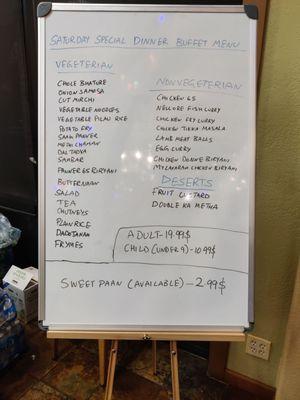 SATURDAY SPECIAL DINNER BUFFET MENU
VEGETERIAN
CHOLE BHATURE
ONION SAMOSA
CUT MIRCHI
VEGETABLE NOODLES
VEGETABLE PILAU RICE
POTATO FRY
SAAG PANEER
METHI CHAMAN
DAL TADKA
SAMBAR
PANEER 65 BIRYANI
BUTTERNAAN
SALAD
TEA
CHUTNEYS
PLAIN RICE
FRYMES
NONVEGETERIAN
CHICKEN 65
NELLORE FISH CURRY
CHICKEN FRY CURRY
CHICKEN TIKKA MASALA
LAMB MEAT BALLS
EGG CURRY
CHICKEN DONNE BIRYANI
CHICKEN BIRYANI
DESERTS
FRUIT CUSTARD
DOUBLE KA METHA
ADULT-19.99$
CHILD (UNDER 9)-10.99$
SWEET PAAN (AVAILABLE) - 2.99$